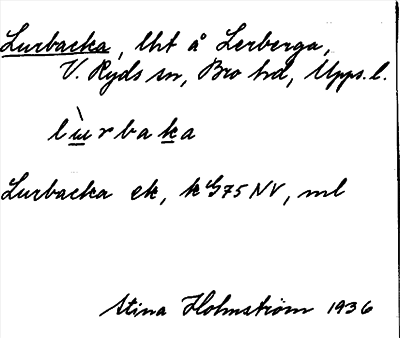 Lurbacka, lht å Lerberga,
V. Ryds sn, Bro hd, Upps. l.
lùrbaka
Lurbacka ek, k G75 NV, ml
Stina Holmström 1936